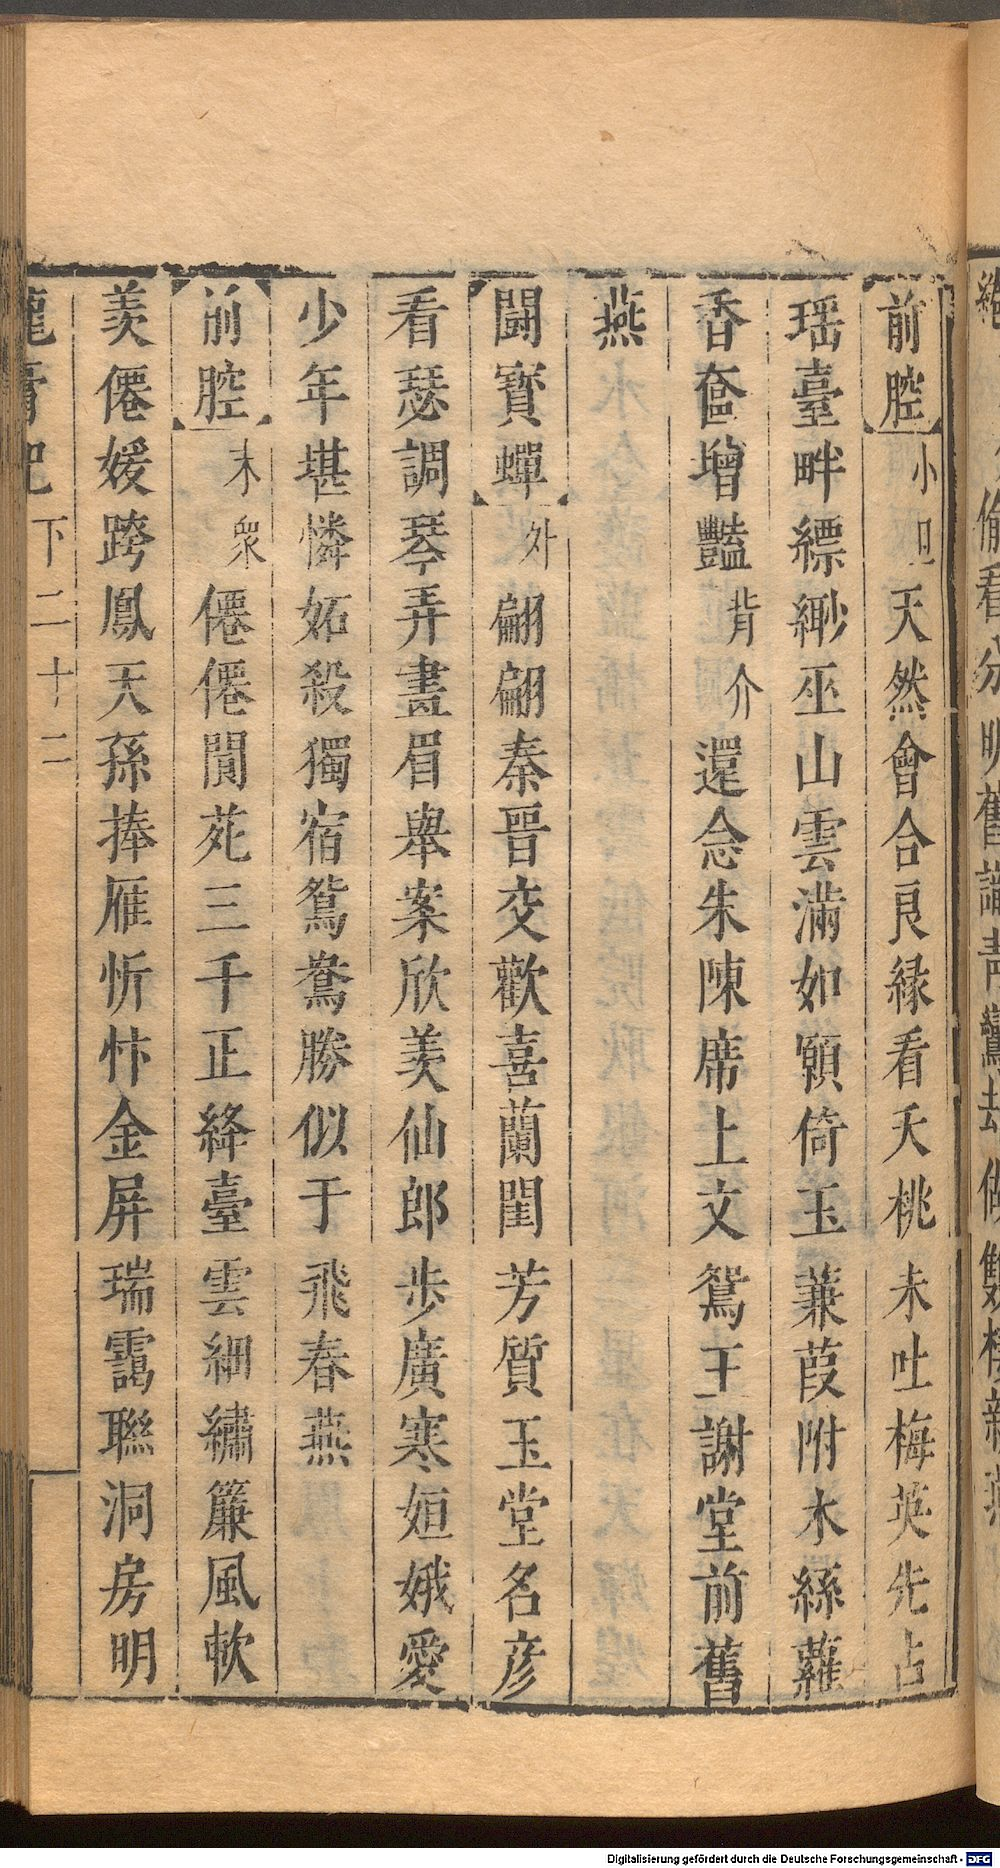 前腔小旦天然會合良緣看夭桃未吐梅英先占
瑶臺畔縹緲巫山雲滿如願倚玉蒹葭附木絲蘿
香奩增豔背介還念朱陳席上文鴛王謝堂前舊
燕
鬪寳蟬外翩翩秦晉交歡喜蘭閨芳質玉堂名彦
看瑟調琴弄畫眉舉案欣羡仙郎步廣寒姮娥愛
少年堪憐妬殺獨宿鴛鴦勝似于飛春燕
前腔末衆僊僊閬苑三千正絳臺雲細繡簾風軟
羡僊媛跨鳳天孫捧雁忻忭金屏瑞靄聯洞房明
龍膏記下二十二
偷看分明舊識青鸞去做雙棲新燕
Digitalisierung gefördert durch die Deutsche Forschungsgemeinschaft - DFG